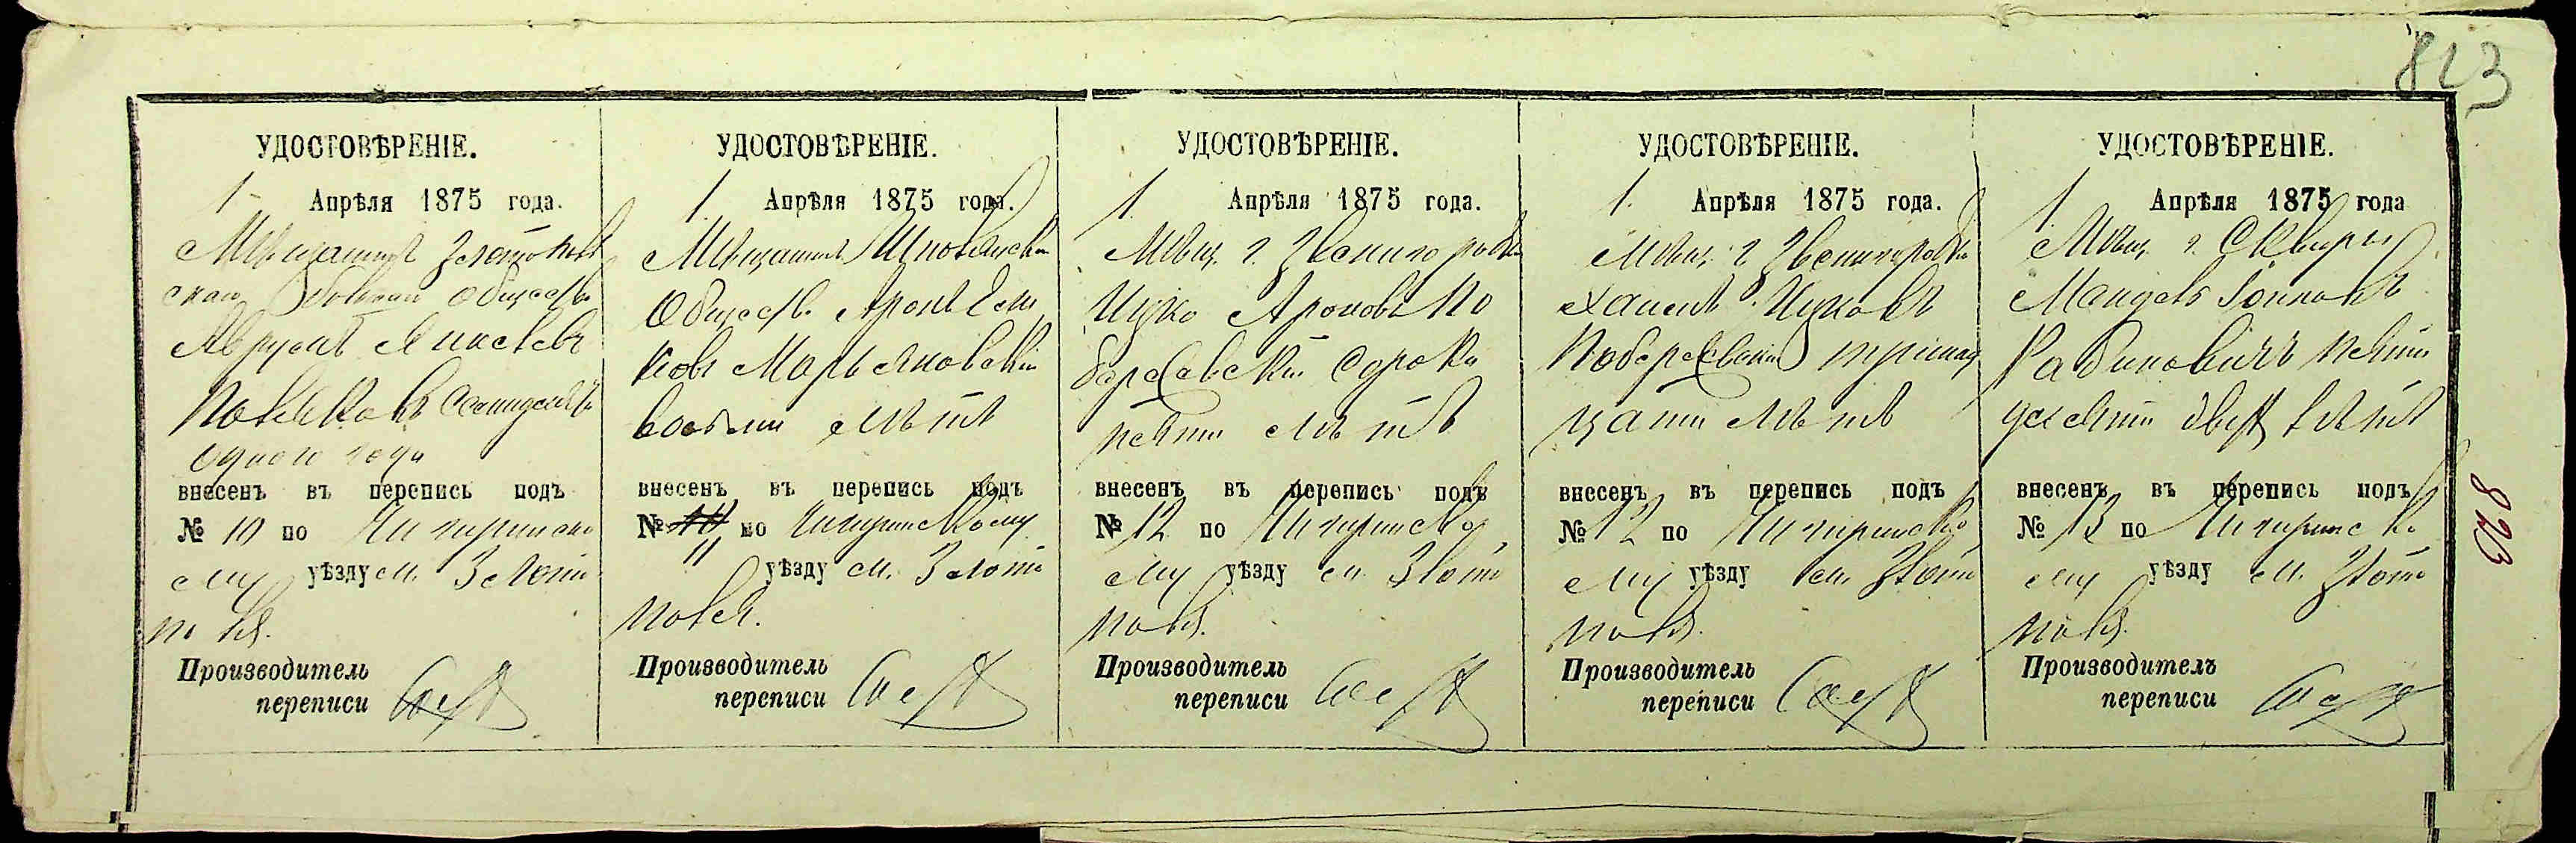 823
УДОСТОВѢРЕНІЕ.
1 Апрѣля 1875 года.
Мѣщанинъ Златополь
скаго Общества
Аврумъ
одного года
внесенъ въ перепись подъ
№ 10 по Чигиринско
му уѣзду м. Злато
поля.
Производитель
переписи
УДОСТОВѢРЕНІЕ.
1. Апрѣля 1875 года.
Мѣщанинъ Шполянскаго
Обществ. Аронъ
ковъ Марьяновскій
восьми лѣтъ
внесенъ въ перепись подъ
№ 10 по Чигиринскому
11 уѣзду м. Злато
поля.
Производитель
переписи
УДОСТОВѢРЕНІЕ.
1. Апрѣля 1875 года.
Мѣщ. г. Звенигородки
Ицко Ароновъ По
бережевскій сорока
пяти лѣтъ
внесенъ въ перепись подъ
№ 12 по Чигиринско
му уѣзду м. Злато
поля.
Производитель
переписи
УДОСТОВѢРЕНІЕ.
1. Апрѣля 1875 года.
Мѣщ. г. Звенигородки
Хаимъ Ицковъ
Побережевскій тринад
цати лѣтъ
внесенъ въ перепись подъ
№ 12 по Чигиринско
му уѣзду м. Злато
поля.
Производитель
переписи
УДОСТОВѢРЕНІЕ.
1. Апрѣля 1875 года
Мѣщ. г. Сквиры
Мандель
Рабиновичъ пяти
десяти двухъ лѣтъ
внесенъ въ перепись подъ
№ 13 по Чигиринско
му уѣзду м. Злато
поля.
Производитель
переписи
823